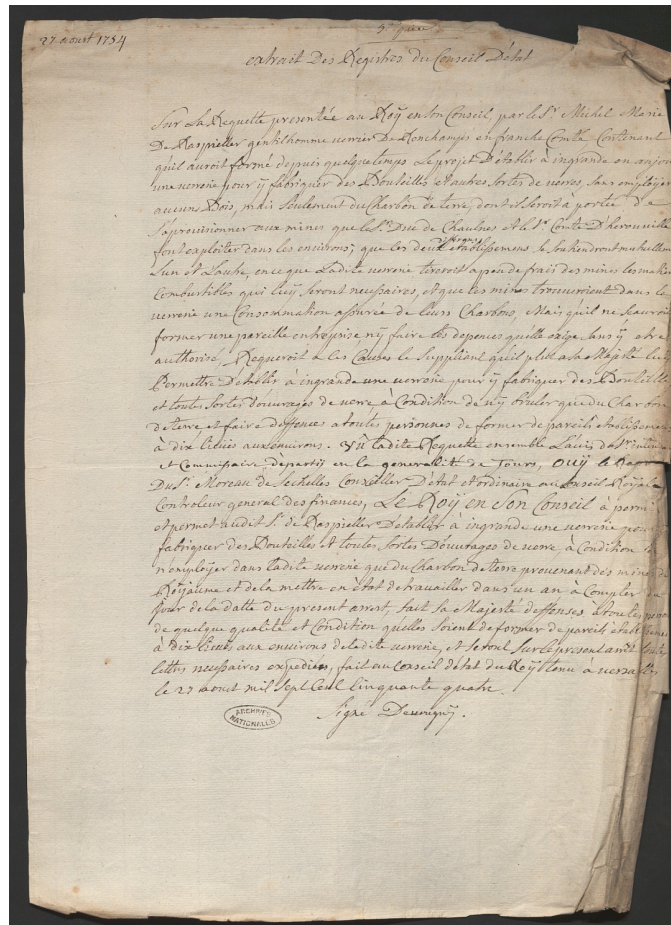 27 aoust 1754
5e piece
extrait Des Registres du Conseil D'état
Sur La Requette presentée au Roÿ en son Conseil, par le Sr. Michel Marie
De Raspieller gentilhomme verrier De Ronchamps en franche Comté Contenant
qu'il auroit formé depuis quelque temps Le projet D'établir à ingrande en anjou
une verrerie pour ÿ fabriquer des Bouteilles et autres sortes de verres, sans employer
aucuns Bois, mais seulement du Charbon de terre, dont il seroit à portée de
s'aprovisionner aux mines que le Sr. Duc de Chaulnes et le Sr. Comte D'herouville
font exploiter dans les environs; que les deux établissemens se soutiendront mutuellem
L'un et L'autre, en ce que Ladite verrerie tireroit à peu de frais des mines les matier
Combustibles qui luÿ seront necessaires, et que les mines trouveroient dans la
verrerie une Consommation assurée de leurs Charbons, Mais qu'il ne sauroit
former une pareille entreprise nÿ faire les depences qu'elle exige sans ÿ etre
authorisé, Requeroit à les Causes le Suppliant qu'il plut a sa Majesté luÿ
Permettre D'etablir à ingrande une verrerie pour ÿ fabriquer des Bouteill
et toutes sortes d'ouvrages de verre à Condition de n'ÿ bruler que du Charbon
de terre et faire deffences a toutes personnes de former de pareils etablissemen
à dix lieües aux environs. Vû ladite Requette ensemble L'avis du Sr. intend
et Commissaire départÿ en la generalité de Tours, Ouÿ le Rap
Du Sr. Moreau de Sechelles Conseiller D'état et ordinaire au Conseil Roÿal
Controleur general des finances, Le Roÿ en Son Conseil à permi
et permet audit Sr. de Raspieller D'etablir à ingrande une verrerie pour
fabriquer des Bouteilles et toutes sortes D'ouvrages de verre, à Condition
n'employer dans ladite verrerie que du Charbon de terre provenant des mines du
Roÿaume et de la mettre en état de travailler dans un an à Compter du
jour de la datte du present arrest, fait Sa Majesté deffenses a toutes person
de quelque qualité et Condition qu'elles soient de former de pareils etablissemen
à dix lieües aux environs de ladite verrerie, et seront Sur le present arrest toutes
lettres necessaires expediées, fait au Conseil d'état du Roÿ tenu à versailles
le 27 aoust mil sept Cent Cinquante quatre.
Signé Devougnÿ.
ARCHIVES
NATIONALES